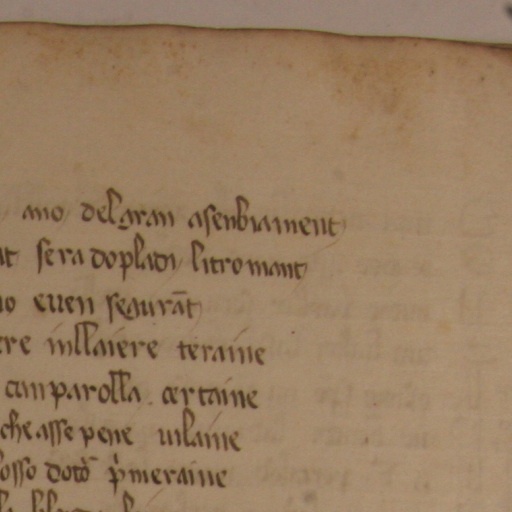 ano del gran asenbiament
nt sera dopladi li tromant
no even segurãt
ere in llaiere teraine
cun parolla . certaine
che asse pene vilaine
osso dotõ p̃meraine